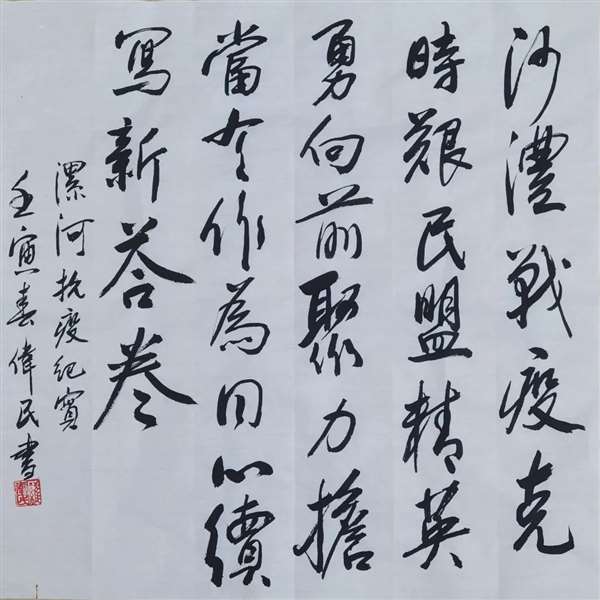 沙澧戰疫克
時艱民盟精英
勇向前聚力擔
當令作為同心價
寫新答卷
漯河抗疫紀實
壬寅春偉民書